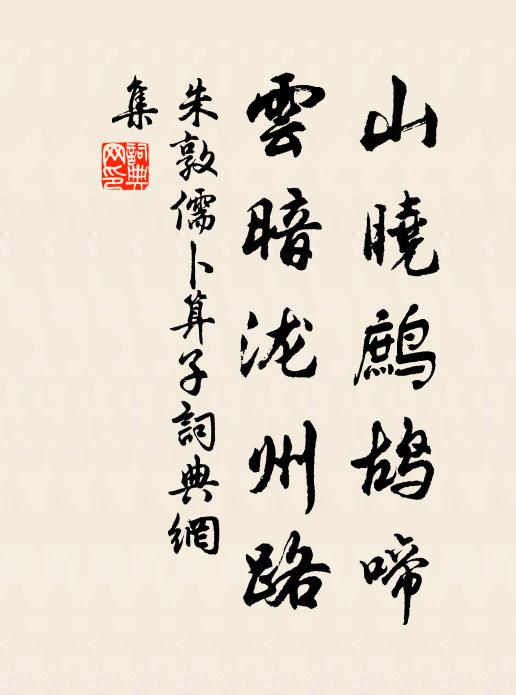 山曉鷓鴣啼
雲暗泷州路
朱敦儒卜算子詞典網
集
詞典網印